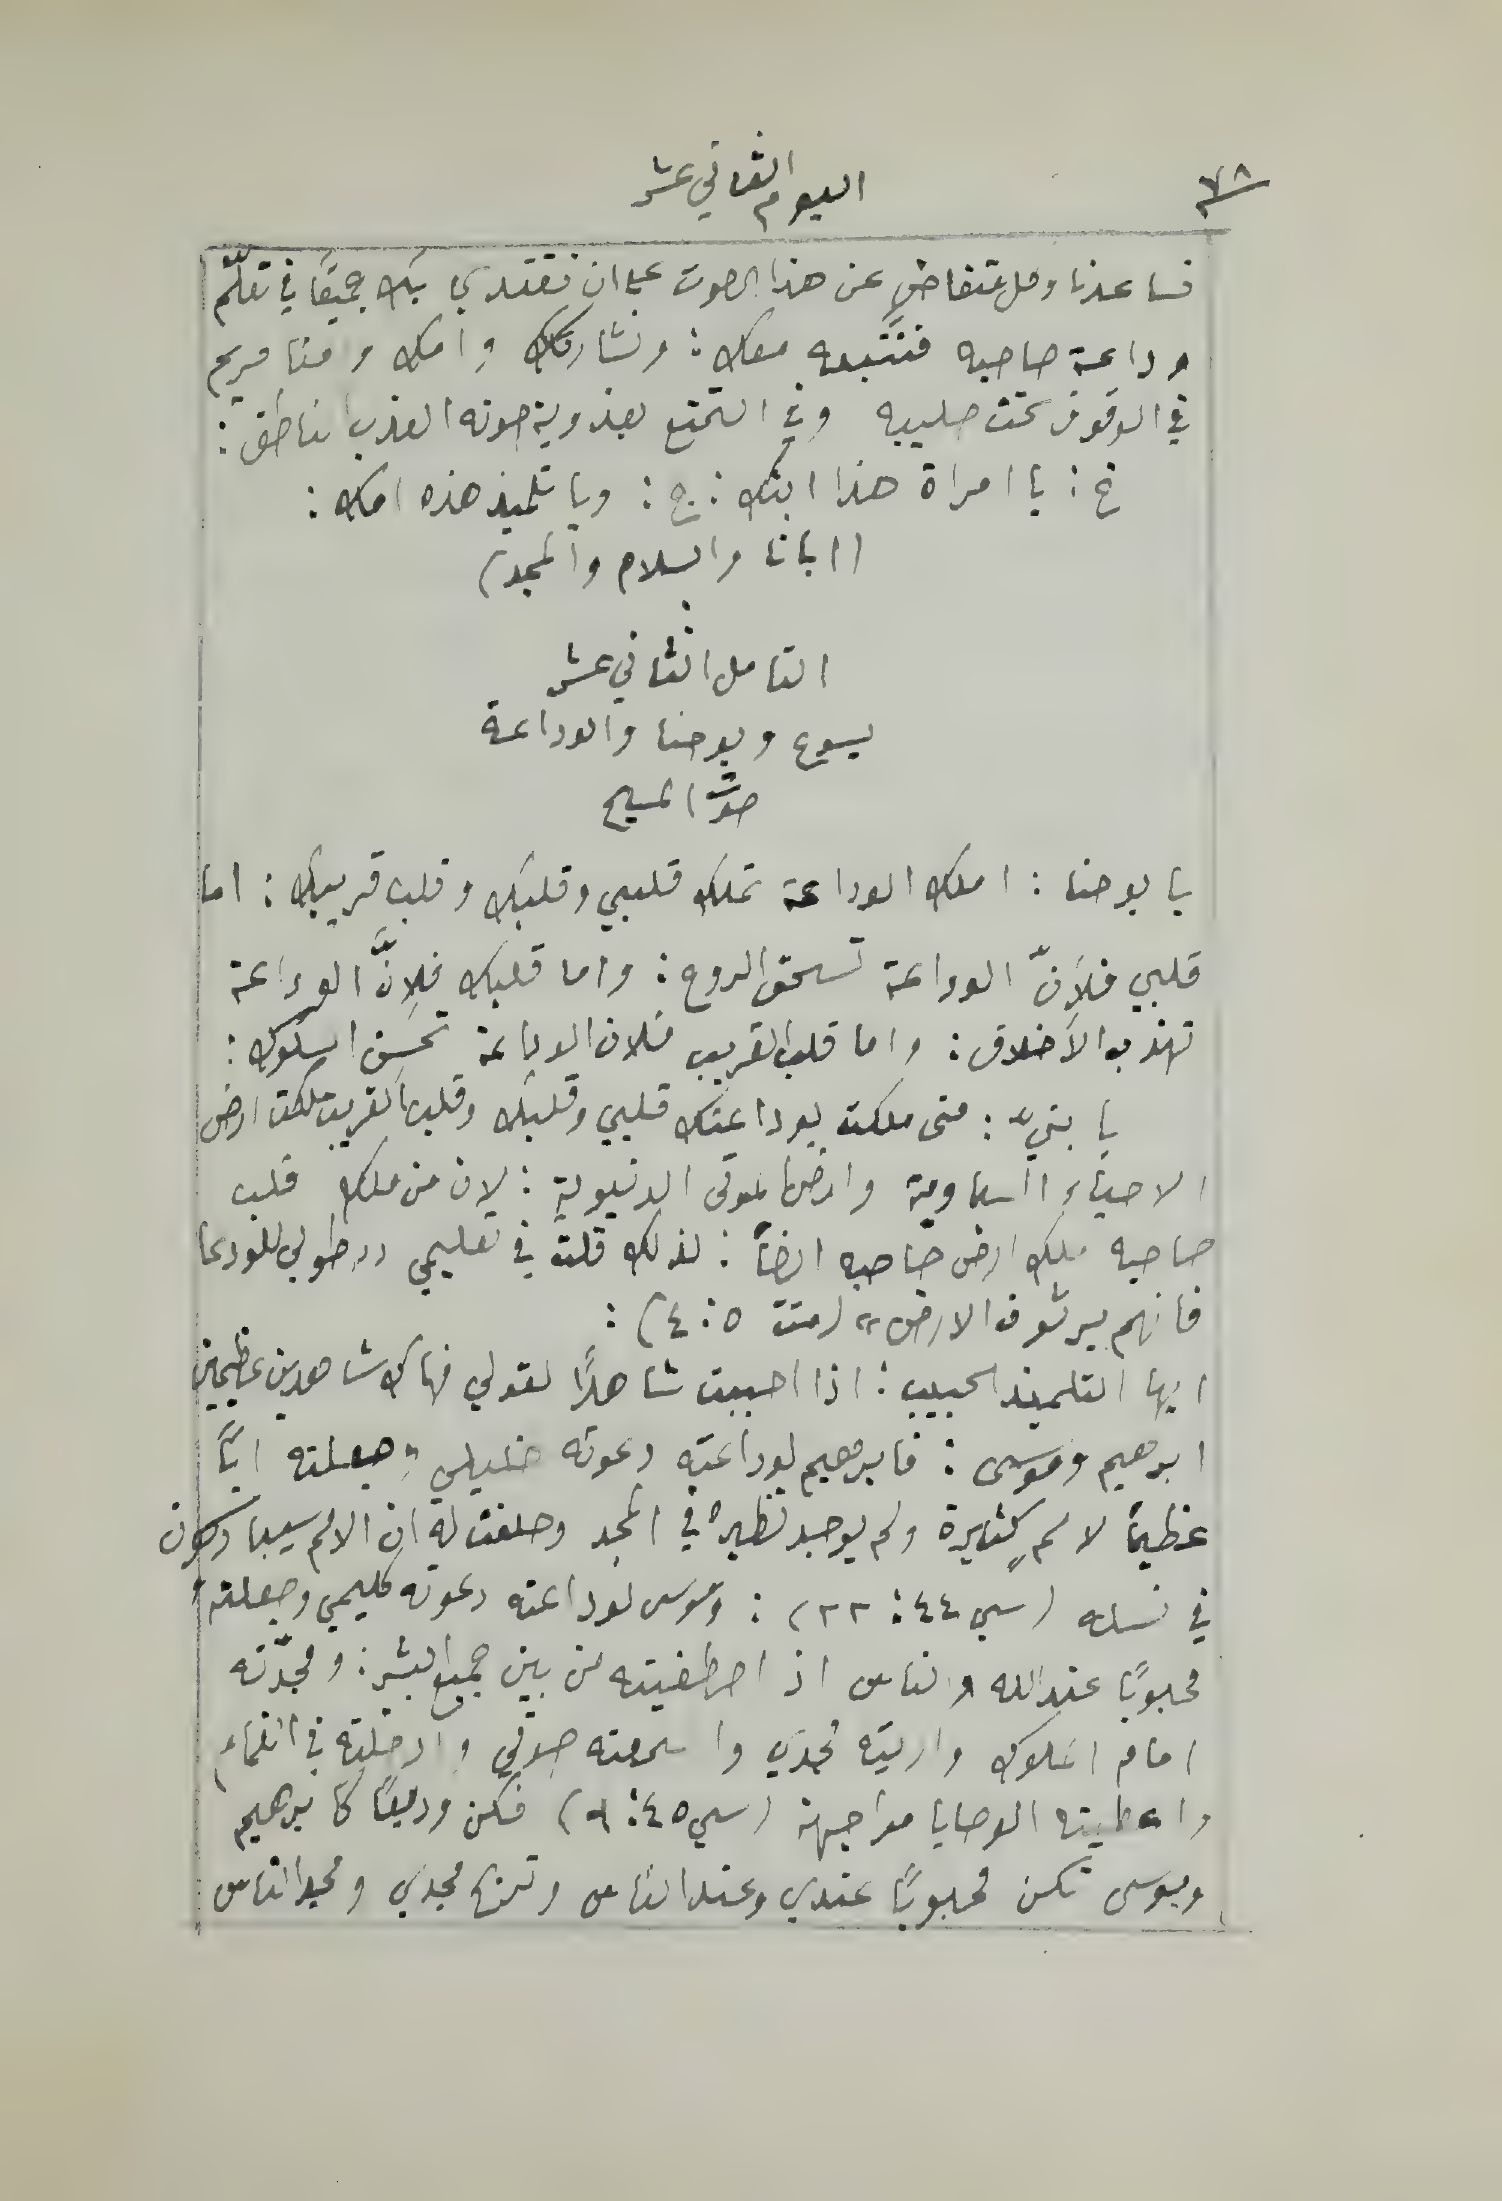 ٧٨
اليوم الثاني عشر
فساعدنا وكل متغاضٍ عن هذا الصوت على ان نقتدي بك جميعًا في تعلّم
وداعة صاحبه فنتبعه معك : ونشاركك وامك وامنا مريم
في الوقوف تحت صليبه وفي التمتع بعذوبة صوته العذب الناطق :
خ : يا امراة هذا ابنك : ج : ويا تلميذ هذه امك :
(ابانا والسلام والمجد)
التامل الثاني عشر
يسوع ويوحنا والوداعة
صوت المسيح
يا يوحنا : املك الوداعة تملك قلبي وقلبك وقلب قريبك : اما
قلبي فلأنّ الوداعة تسحق الروح : واما قلبك فلانَّ الوداعة
تهذب الأخلاق : واما قلب القريب فلان الوداعة تحسن السلوك :
يا بنيّ : متى ملكت بوداعتك قلبي وقلبك وقلب القريب ملكت ارض
الاحياء السماوية وارض الموتى الدنيوية : لان من ملك قلب
صاحبه ملك ارض صاحبه ايضًا : لذلك قلت في تعليمي "طوبى للودعا
فانهم يرثون الارض" (متت ٥ : ٤) :
ايها التلميذ الحبيب : اذا احببت شاهدًا لقولي فهاك شاهدين عظيمين
ابرهيم وموسى : فابرهيم لوداعته دعوته خليلي وجعلته ابًا
عظيمًا لاممٍ كثيرة ولم يوجد نظيره في المجد وحلفت له ان الامم سيباركون
في نسله (سي ٤٤ : ٢٢) : وموسى لوداعته دعوته كليمي وجعلته
محبوبًا عند الله والناس اذ اصطفيته من بين جميع البشر : ومجدّته
امام الملوك واريته مجدي واسمعته صوتي وادخلته في الغمام
واعطيته الوصايا مواجهة (سي ٤٥ : ٦) فكن وديعًا كابرهيم
وموسى تكن محبوبًا عندي وعند الناس وتمنح مجدي ومجد الناس